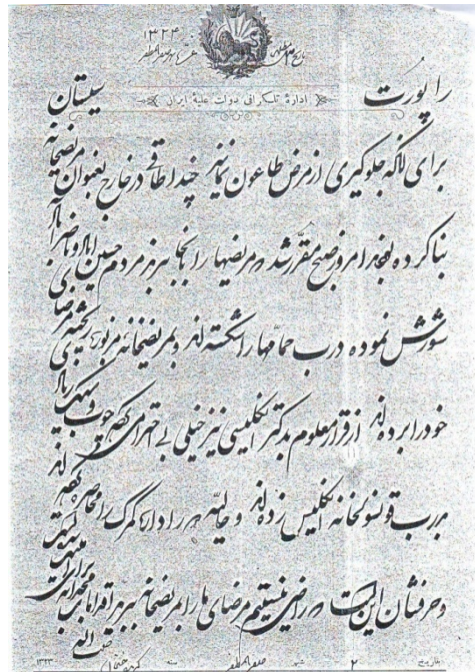 ۱۳۲۴
اداره تلگرافی دولت علیه ایران
راپورت سیستان
برای آنکه جلوگیری از مرض طاعون نمایند چند اطاقی در خارج بعنوان مریضخانه
بنا کرده بودند امروز صبح مقرر شد مریضها را بآنجا ببرند مردم حسین آباد و ناصرآباد
شورش نموده درب حمامها را شکسته اند و بمریضخانه مزبور ریخته مرضای
خود را برده اند از قرار معلوم بدکتر انگلیسی نیز خیلی بی احترامی کرده چوب و سنگ زیاد
بدرب قونسولخانه انگلیس زده اند و حالیه اداره گمرک را محاصره کرده اند
و حرفشان این است راضی نیستیم مرضای ما را بمریضخانه ببرند
۲ شهر صفرالمظفر سنه ۱۳۲۳